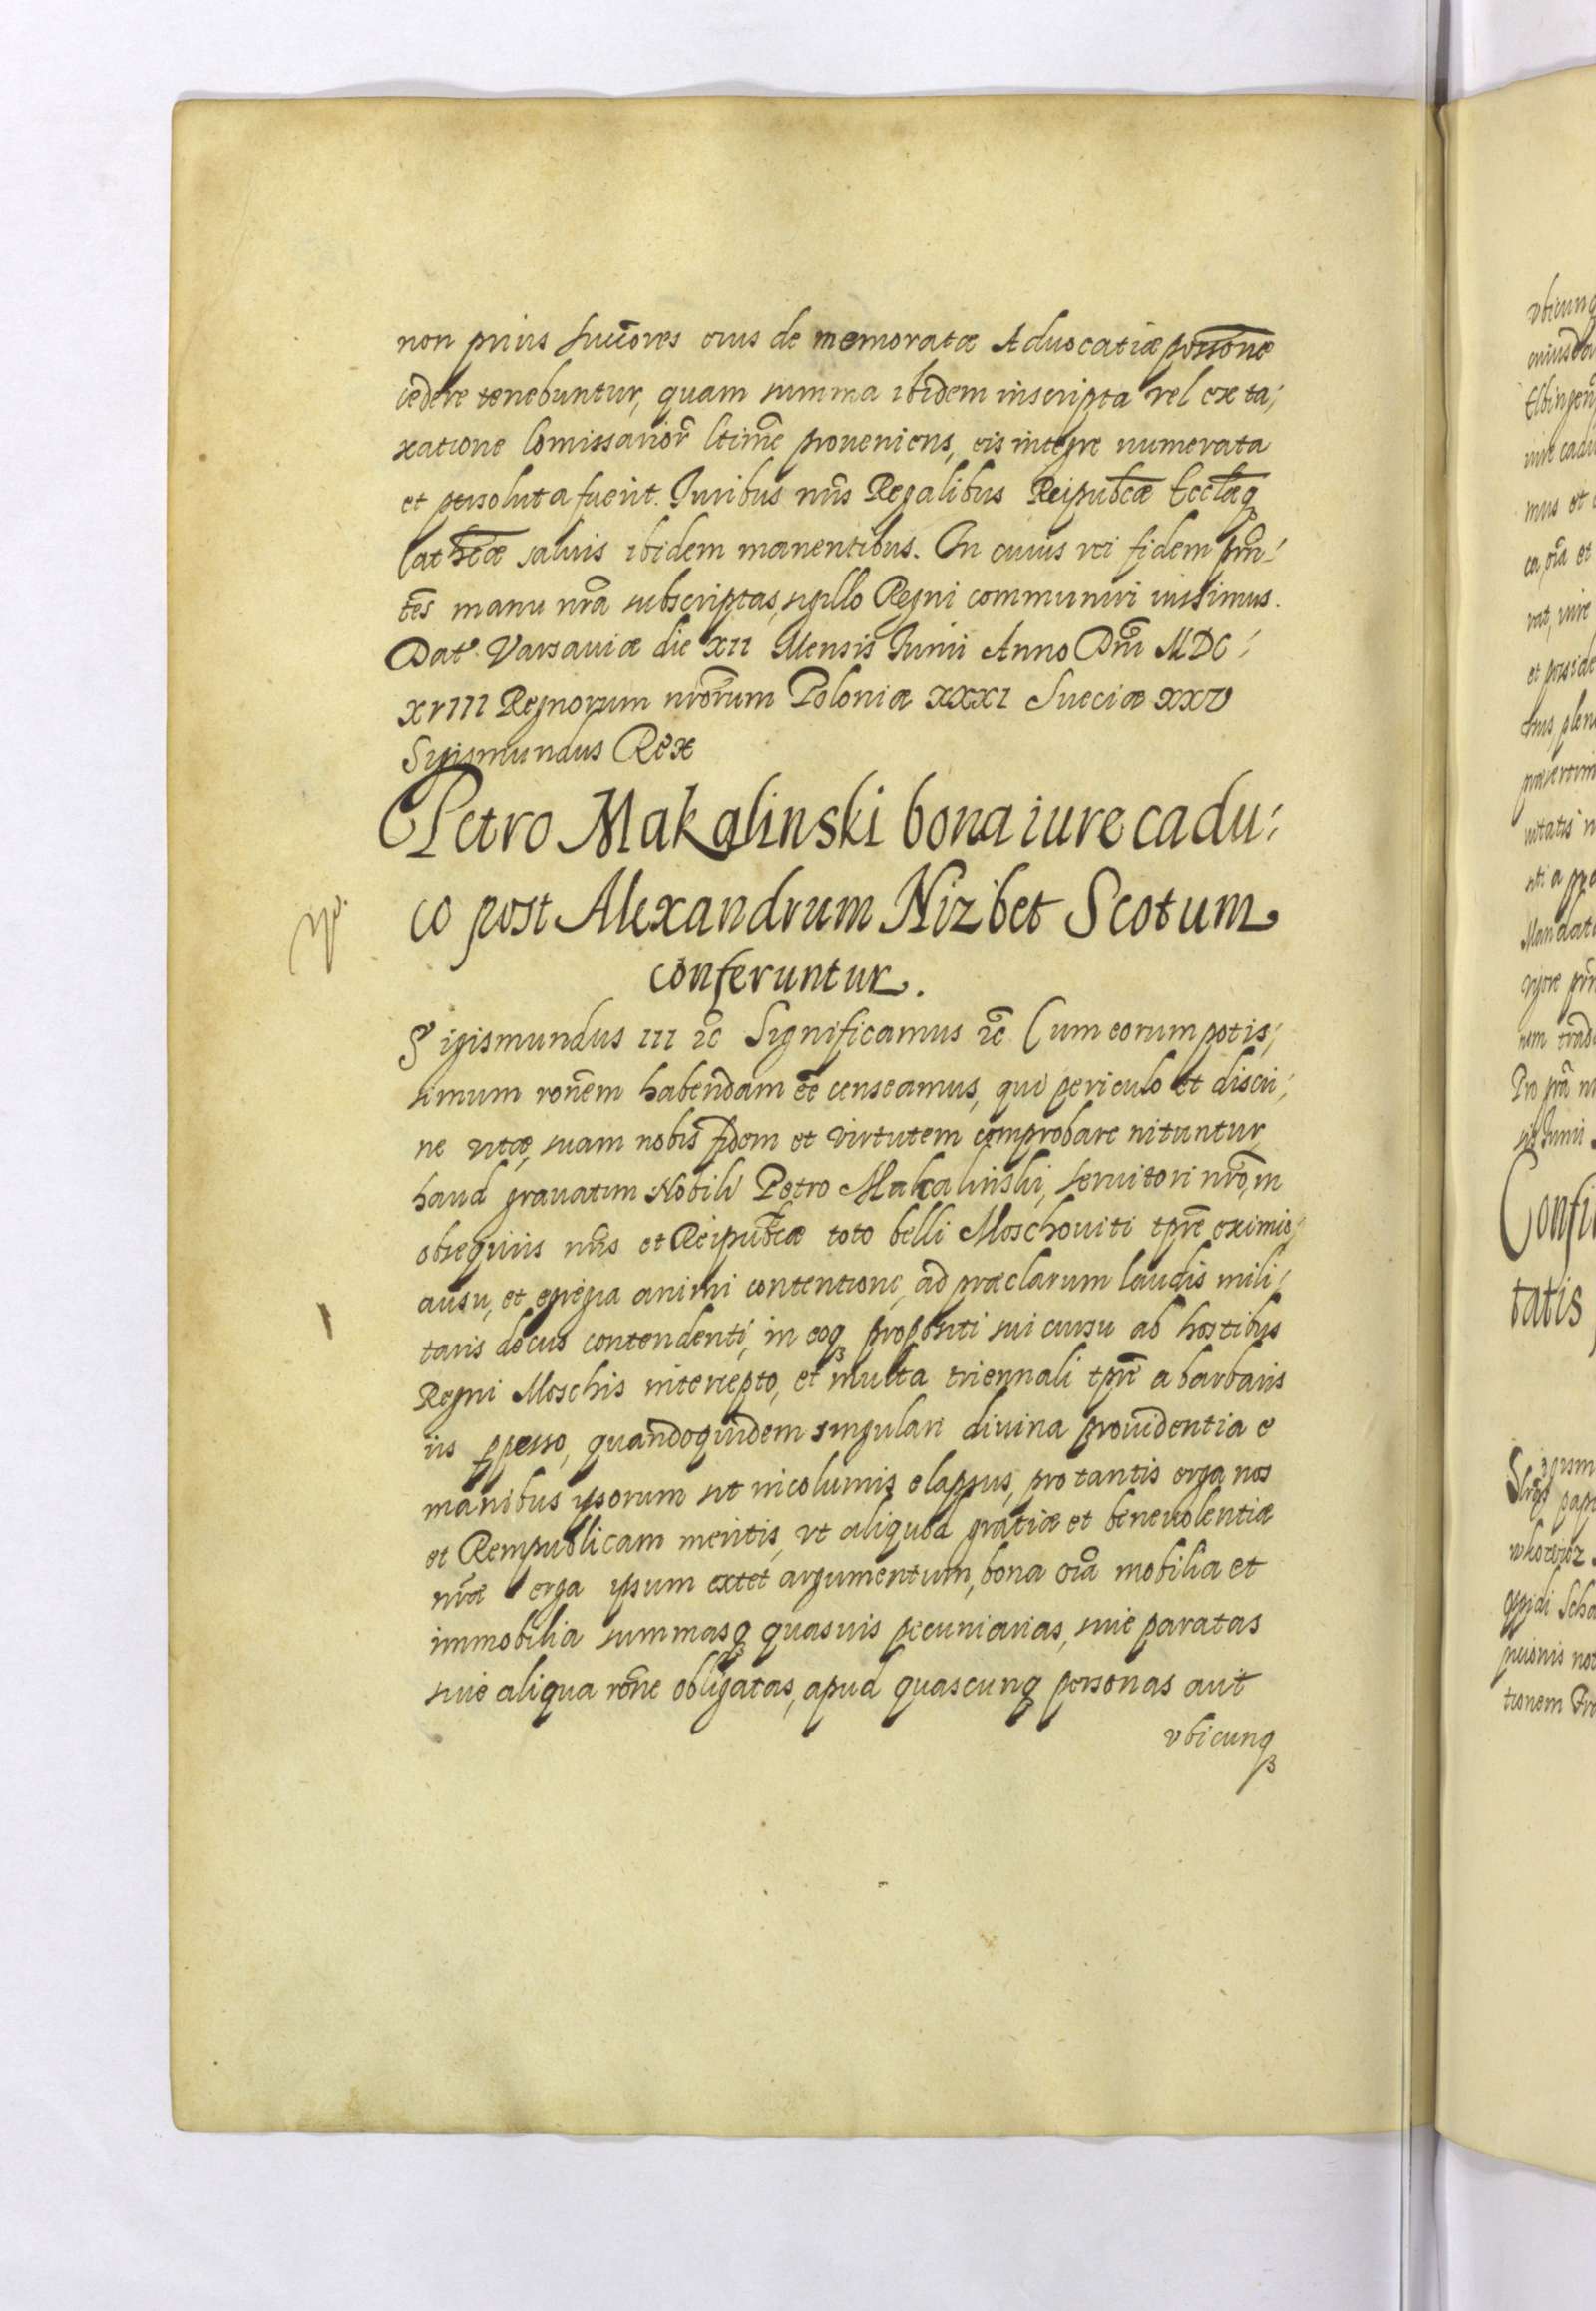 non prius succores eius de memoratæ Advocatiæ possone
cedere tenebuntur, quam summa ibidem inscripta vel ex ta,
xatione Comissarior̃ ltime proueniens, eis integre numerata
et persoluta fuerit. Iuribus nris Regalibus Reipubcæ Ecclæq
Cathcæ saluis ibidem manentibus. In cuius rei fidem prñ,
tes manu nrã subscriptas, sigillo Regni communiri iussimus.
Dat. Varsauiæ die XII Mensis Iunii Anno Dni MDC,
XVIII Regnorum nrorum Poloniæ XXXI Sueciæ XXV
Sigismundus Rex
Petro Makalinski bona iure cadu,
co post Alexandrum Nizbet Scotum
conferuntur.
Sigismundus III &c Significamus &c Cum eorum potis,
simum ronem habendam ee censeamus, qui periculo et discri,
ne vitæ, suam nobis fidem et virtutem comprobare nituntur,
haud grauatim Nobili Petro Makalinski, seruitori nro, in
obsequiis nris et Reipubcæ toto belli Moschouiti tpre eximio,
ausu, et egregia animi contentione, ad præclarum laudis mili,
taris decus contendenti, in eoq propositi sui cursu ab hostibus
Regni Moschis intercepto, et multa triennali tpre a barbaris
iis ppesso, quandoquidem singulari diuina prouidentia e
manibus ipsorum sit incolumis elapsus, pro tantis erga nos
et Rempublicam meritis, vt aliquod gratiæ et beneuolentiæ
nræ erga ipsum extet argumentum, bona oia mobilia et
immobilia summasq quasuis pecuniarias, siue paratas
siue aliqua rone obligatas, apud quascunq personas aut
vbicunq